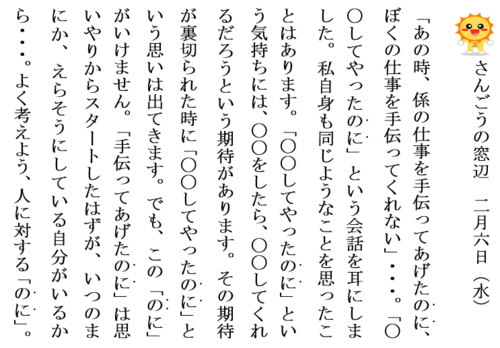 さんごうの窓辺　二月六日（水）
「あの時、係の仕事を手伝ってあげたのに、
ぼくの仕事を手伝ってくれない」・・・。「〇
〇してやったのに」という会話を耳にしま
した。私自身も同じようなことを思ったこ
とはあります。「〇〇してやったのに」とい
う気持ちには、〇〇をしたら、〇〇してくれ
るだろうという期待があります。その期待
が裏切られた時に「〇〇してやったのに」と
いう思いは出てきます。でも、この「のに」
がいけません。「手伝ってあげたのに」は思
いやりからスタートしたはずが、いつのま
にか、えらそうにしている自分がいるか
ら・・・。よく考えよう、人に対する「のに」。